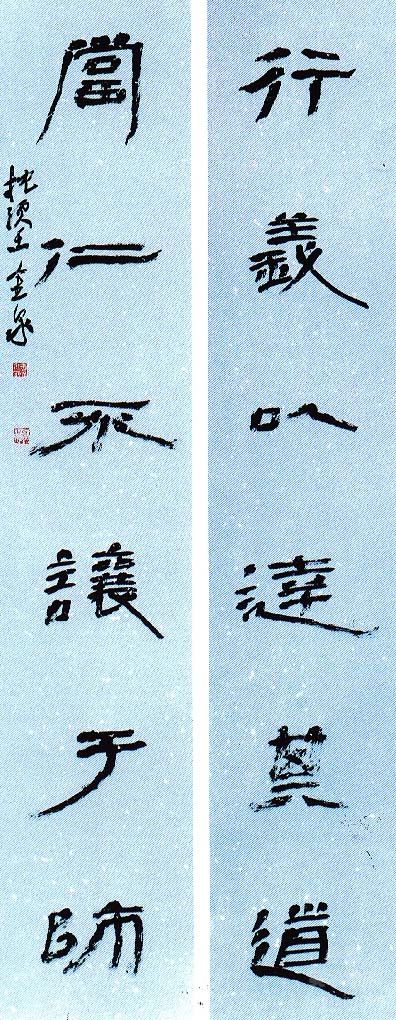 行義以達其道
當仁不讓于師